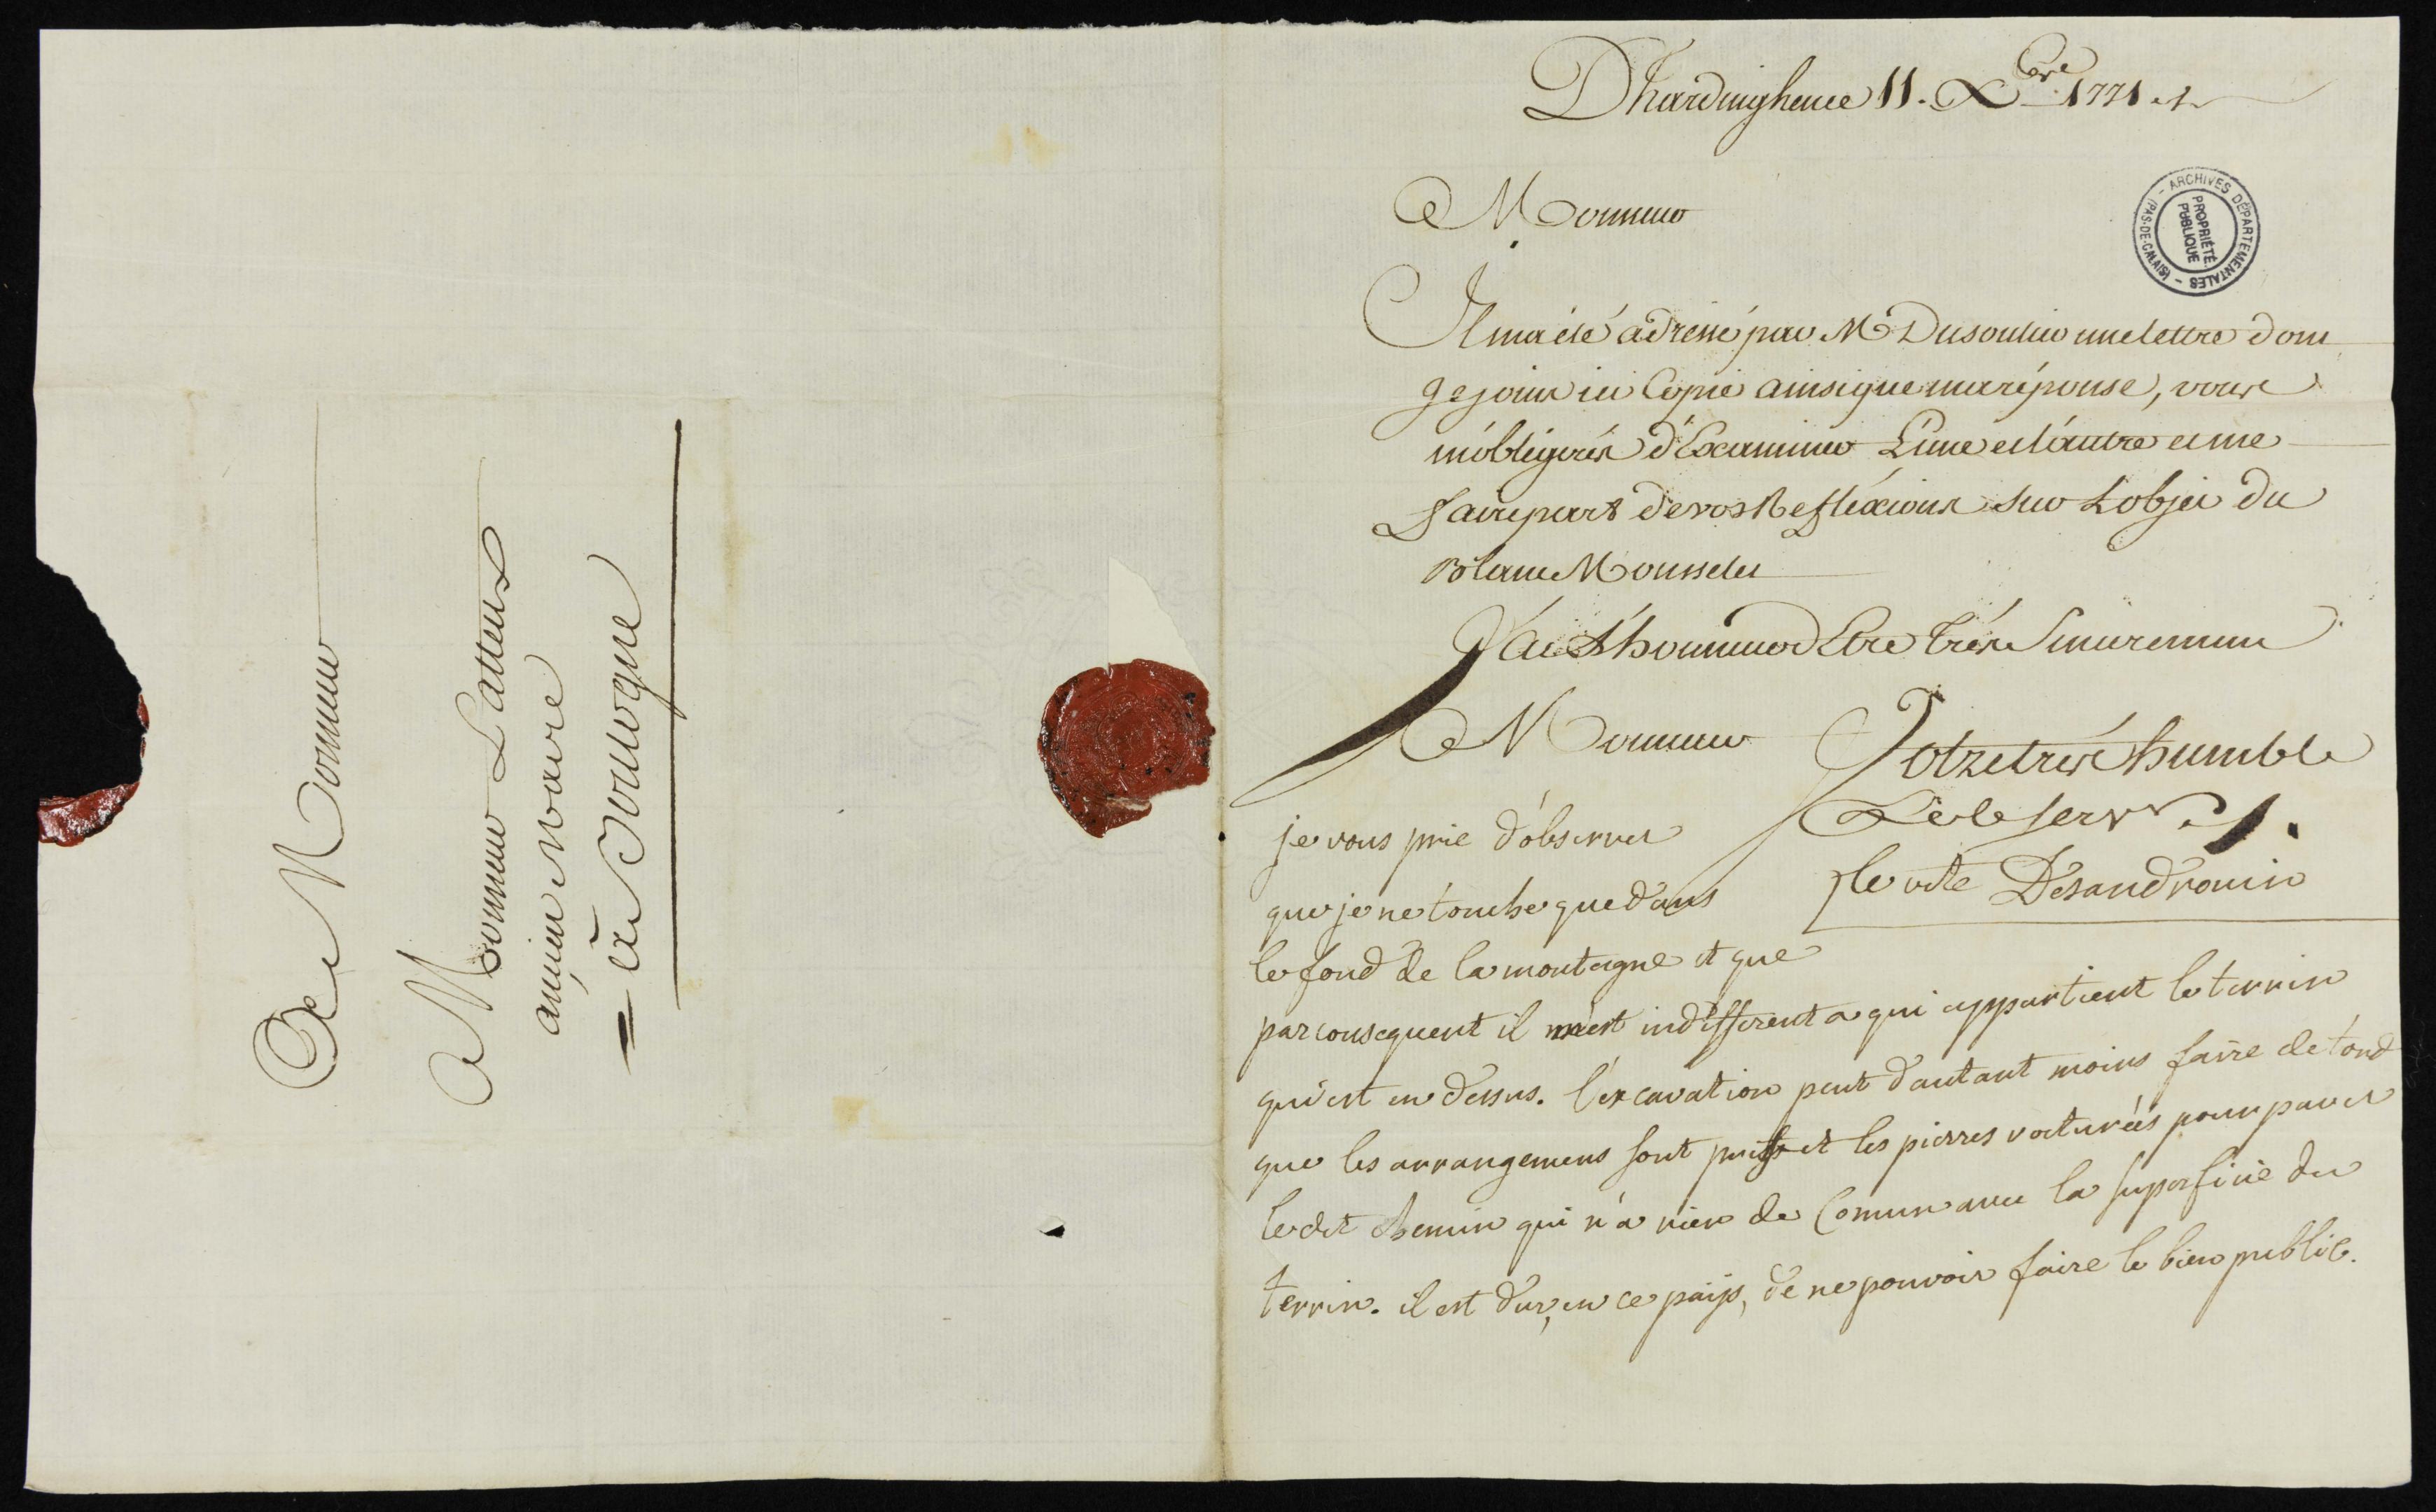 A Monsieur
A Monsieur Latteux
ancien Maire
= à Boulogne
Dhardinghence 11. Xbre 1771.
ARCHIVES DÉPARTEMENTALES
(PAS-DE-CALAIS)
PROPRIÉTÉ
PUBLIQUE
Monsieur
Il m'a été adressé par Mr Dusoulier une lettre dont
je joins ici Copie ainsi que ma réponse, vous
m'obligerés d'Examiner L'une et l'autre et me
faire part de vos Refléxions sur L'objet du
blanc Mousselet
J'ai L'honneur d'Etre très Sincèrement
Monsieur
Votre très humble
je vous prie d'observer
que je ne touche que dans
le vcte Desandrouin
le fond de la montagne et que
par consequent il m'est indifferent a qui appartient le terrin
qui est en dessus. l'excavation peut d'autant moins faire de tord
que les arrangemens sont pris et les pierres voiturées pour paver
le dit chemin qui n'a rien de Comun avec la superficie du
terrin. il est dur, en ce païs, de ne pouvoir faire le bien public.